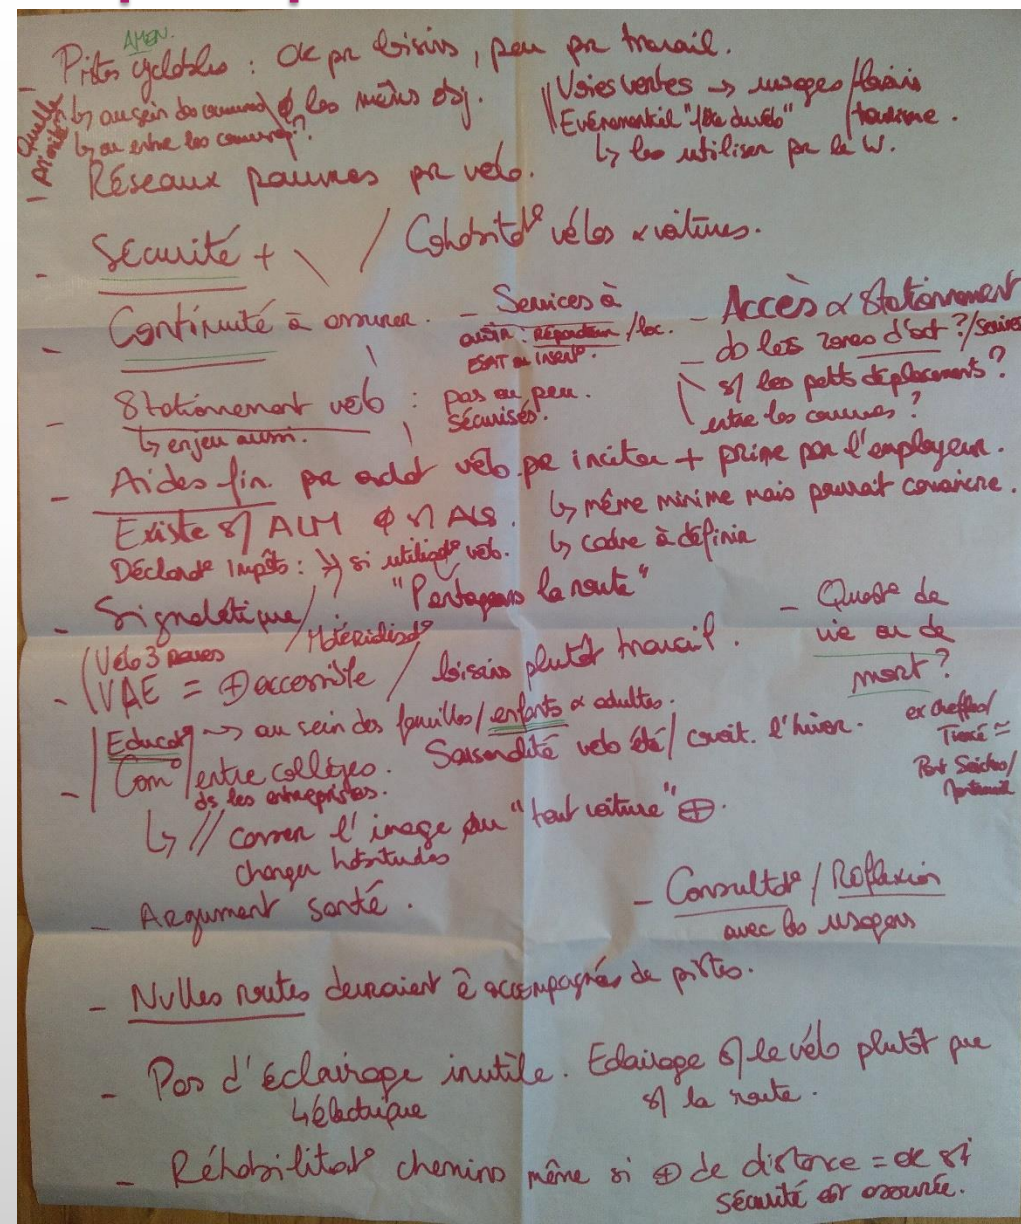 AMEN.
- Pistes cyclables : OK pr loisirs, peu pr travail.
Quelle priorité
↳ au sein des communes ≠ les mêmes obj.
↳ ou entre les communes ?
Voies vertes → usages loisirs / tourisme.
Evénementiel "fête du vélo"
↳ les utiliser pr le W.
- Réseaux pauvres pr vélo.
- Sécurité + \ / Cohabitat° vélos & voitures.
Continuité à assurer.
- Services à avoir : réparateur / loc.
ESAT ou insert°.
- Accès & Stationnement
- ds les zones d'act ? / services
s/ les petits déplacements ?
entre les communes ?
- Stationnement vélo : pas ou peu sécurisés.
↳ enjeu aussi.
- Aides fin. pr achat vélo pr inciter + prime par l'employeur.
↳ même minime mais pourrait convaincre.
↳ cadre à définir
Existe s/ ALM ∅ s/ ALS.
Déclarat° Impôts : si utilisat° vélo.
- Signalétique / : "Partageons la route"
Matérialisat°
- Vélo 3 roues
VAE = ⊕ accessible / loisirs plutôt travail.
- Quest° de vie ou de mort ?
ex Cheffes / Tiercé ≈
- Educat° → au sein des familles / enfants & adultes.
Com° / entre collèges.
ds les entreprises.
Saisonnalité vélo été / covoit. l'hiver.
↳ // casser l'image du "tout voiture" ⊕.
changer habitudes
- Argument santé.
- Consultat° / Réflexion
avec les usagers
- Nvlles routes devraient ê accompagnées de pistes.
- Pas d'éclairage inutile. Eclairage s/ le vélo plutôt que s/ la route.
↳ électrique
- Réhabilitat° chemins même si ⊕ de distance = ok si sécurité est assurée.